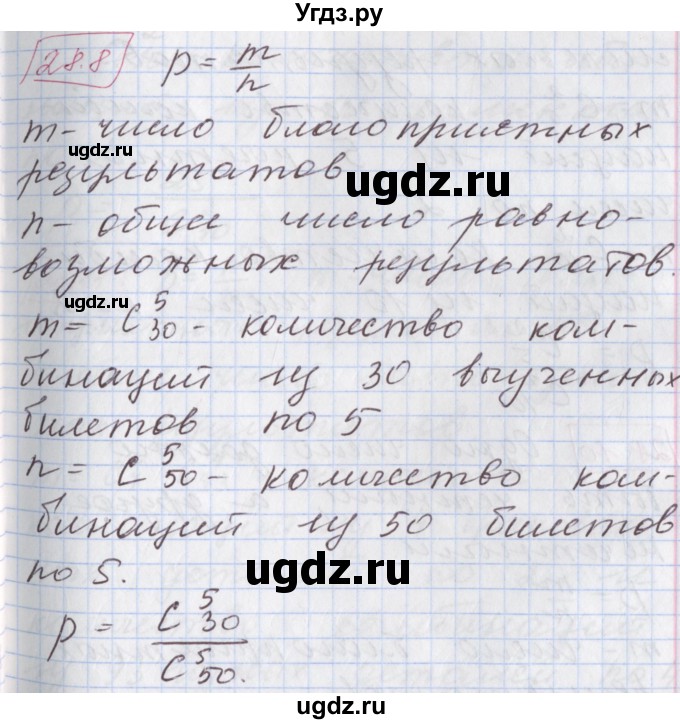 Угдз.ру
28.8 p = m/n
m - число благоприятных
результатов
ugdz.ru
n - общее число равно-
возможных результатов.
ugdz.ru
m = C⁵₃₀ - количество ком-
ugdz.ru
бинаций из 30 выученных
билетов по 5
n = C⁵₅₀ - количество ком-
ugdz.ru
бинаций из 50 билетов
по 5.
ugdz.ru
p = C⁵₃₀ / C⁵₅₀.
ugdz.ru
ugdz.ru